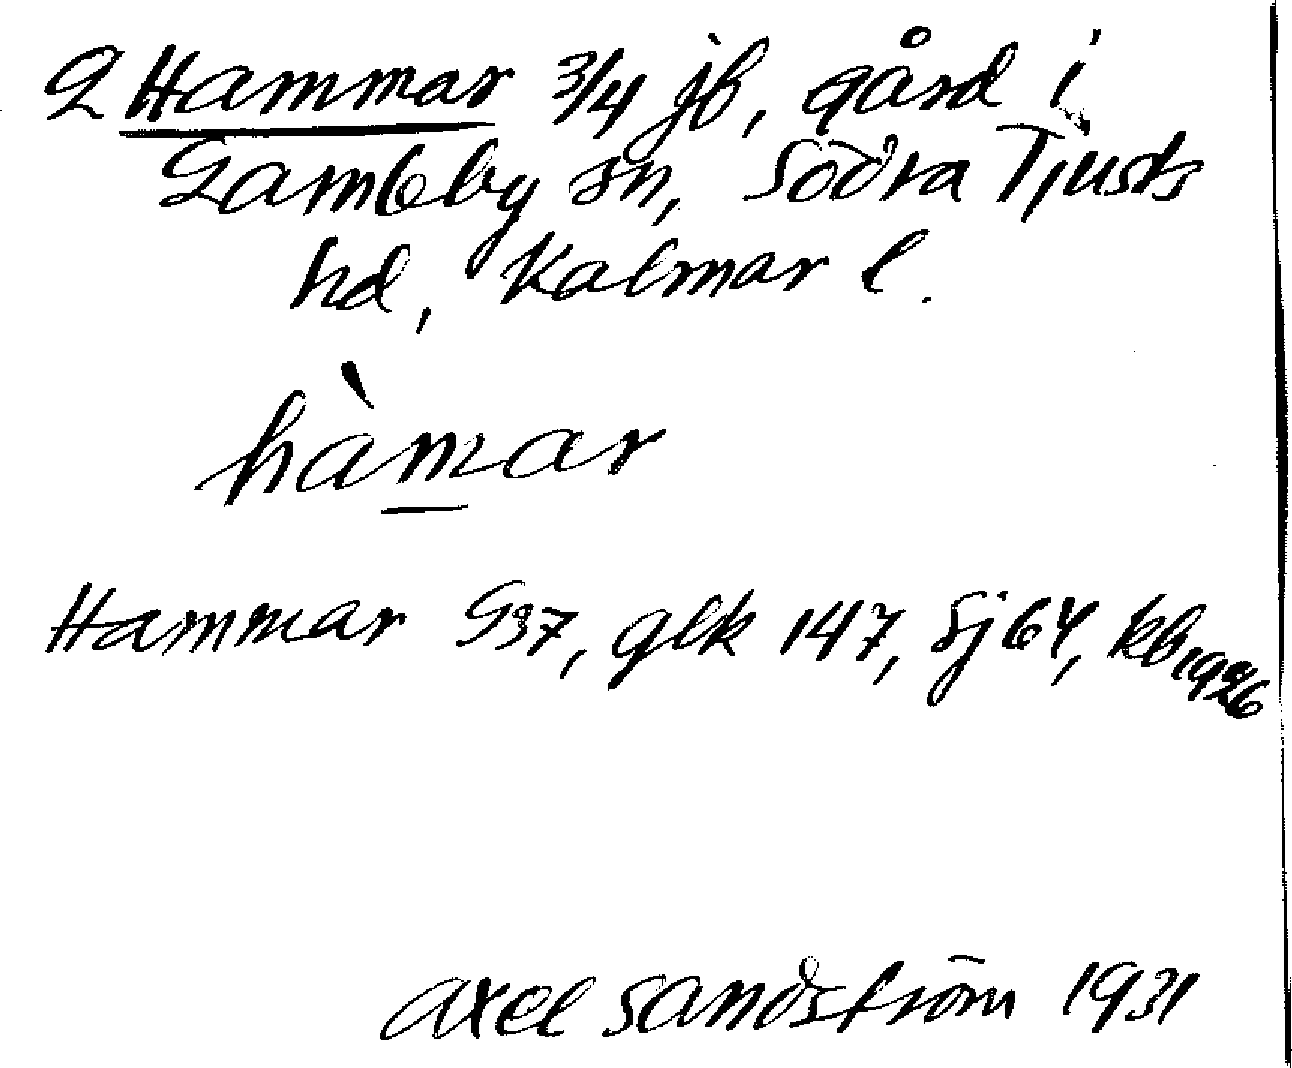 2 Hammar 3/4 jb, gård i
Gamleby sn, Södra Tjusts
hd, Kalmar l.
hàmar
Hammar G37, glk 147, Sj 64, kb 1926
Axel Sandström 1931